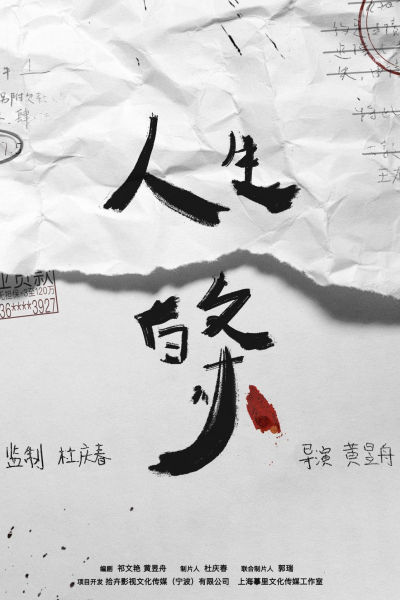 附欠款
人生
业贷款
36****3927
白条
监制 杜庆春
导演 黄昱舟
编剧 祁文艳 黄昱舟 制片人 杜庆春 联合制片人 郭瑞
项目开发 拾卉影视文化传媒（宁波）有限公司 上海摹里文化传媒工作室